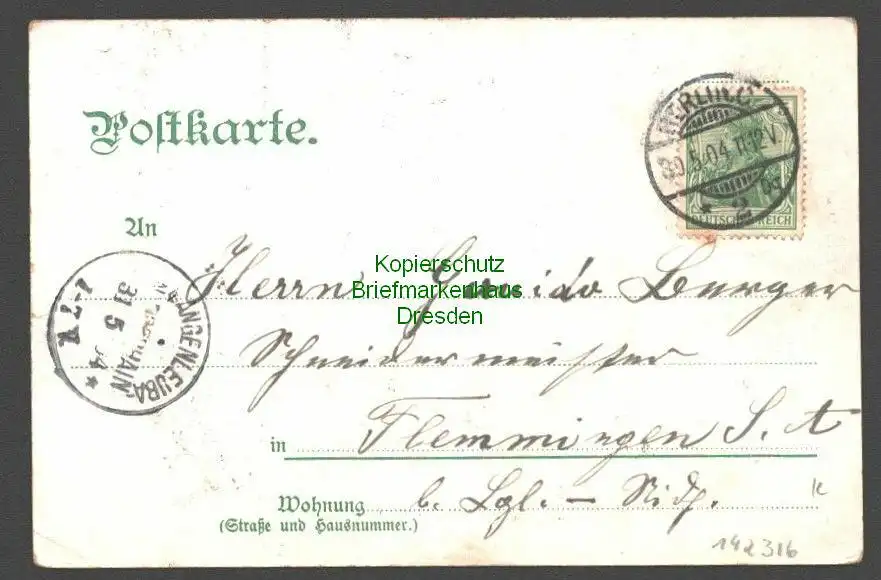 Postkarte.
BERLIN.C
30.5.04.11-12V.
* 2
DEUTSCHES REICH
An
Herrn Guido Burger
Kopierschutz
Briefmarkenhaus
Dresden
LANGENLEUBA
31 5 04
Schneidermeister
in Flemmingen S. A
Wohnung b. Lgl. – Ndh.
(Straße und Hausnummer.)
142316